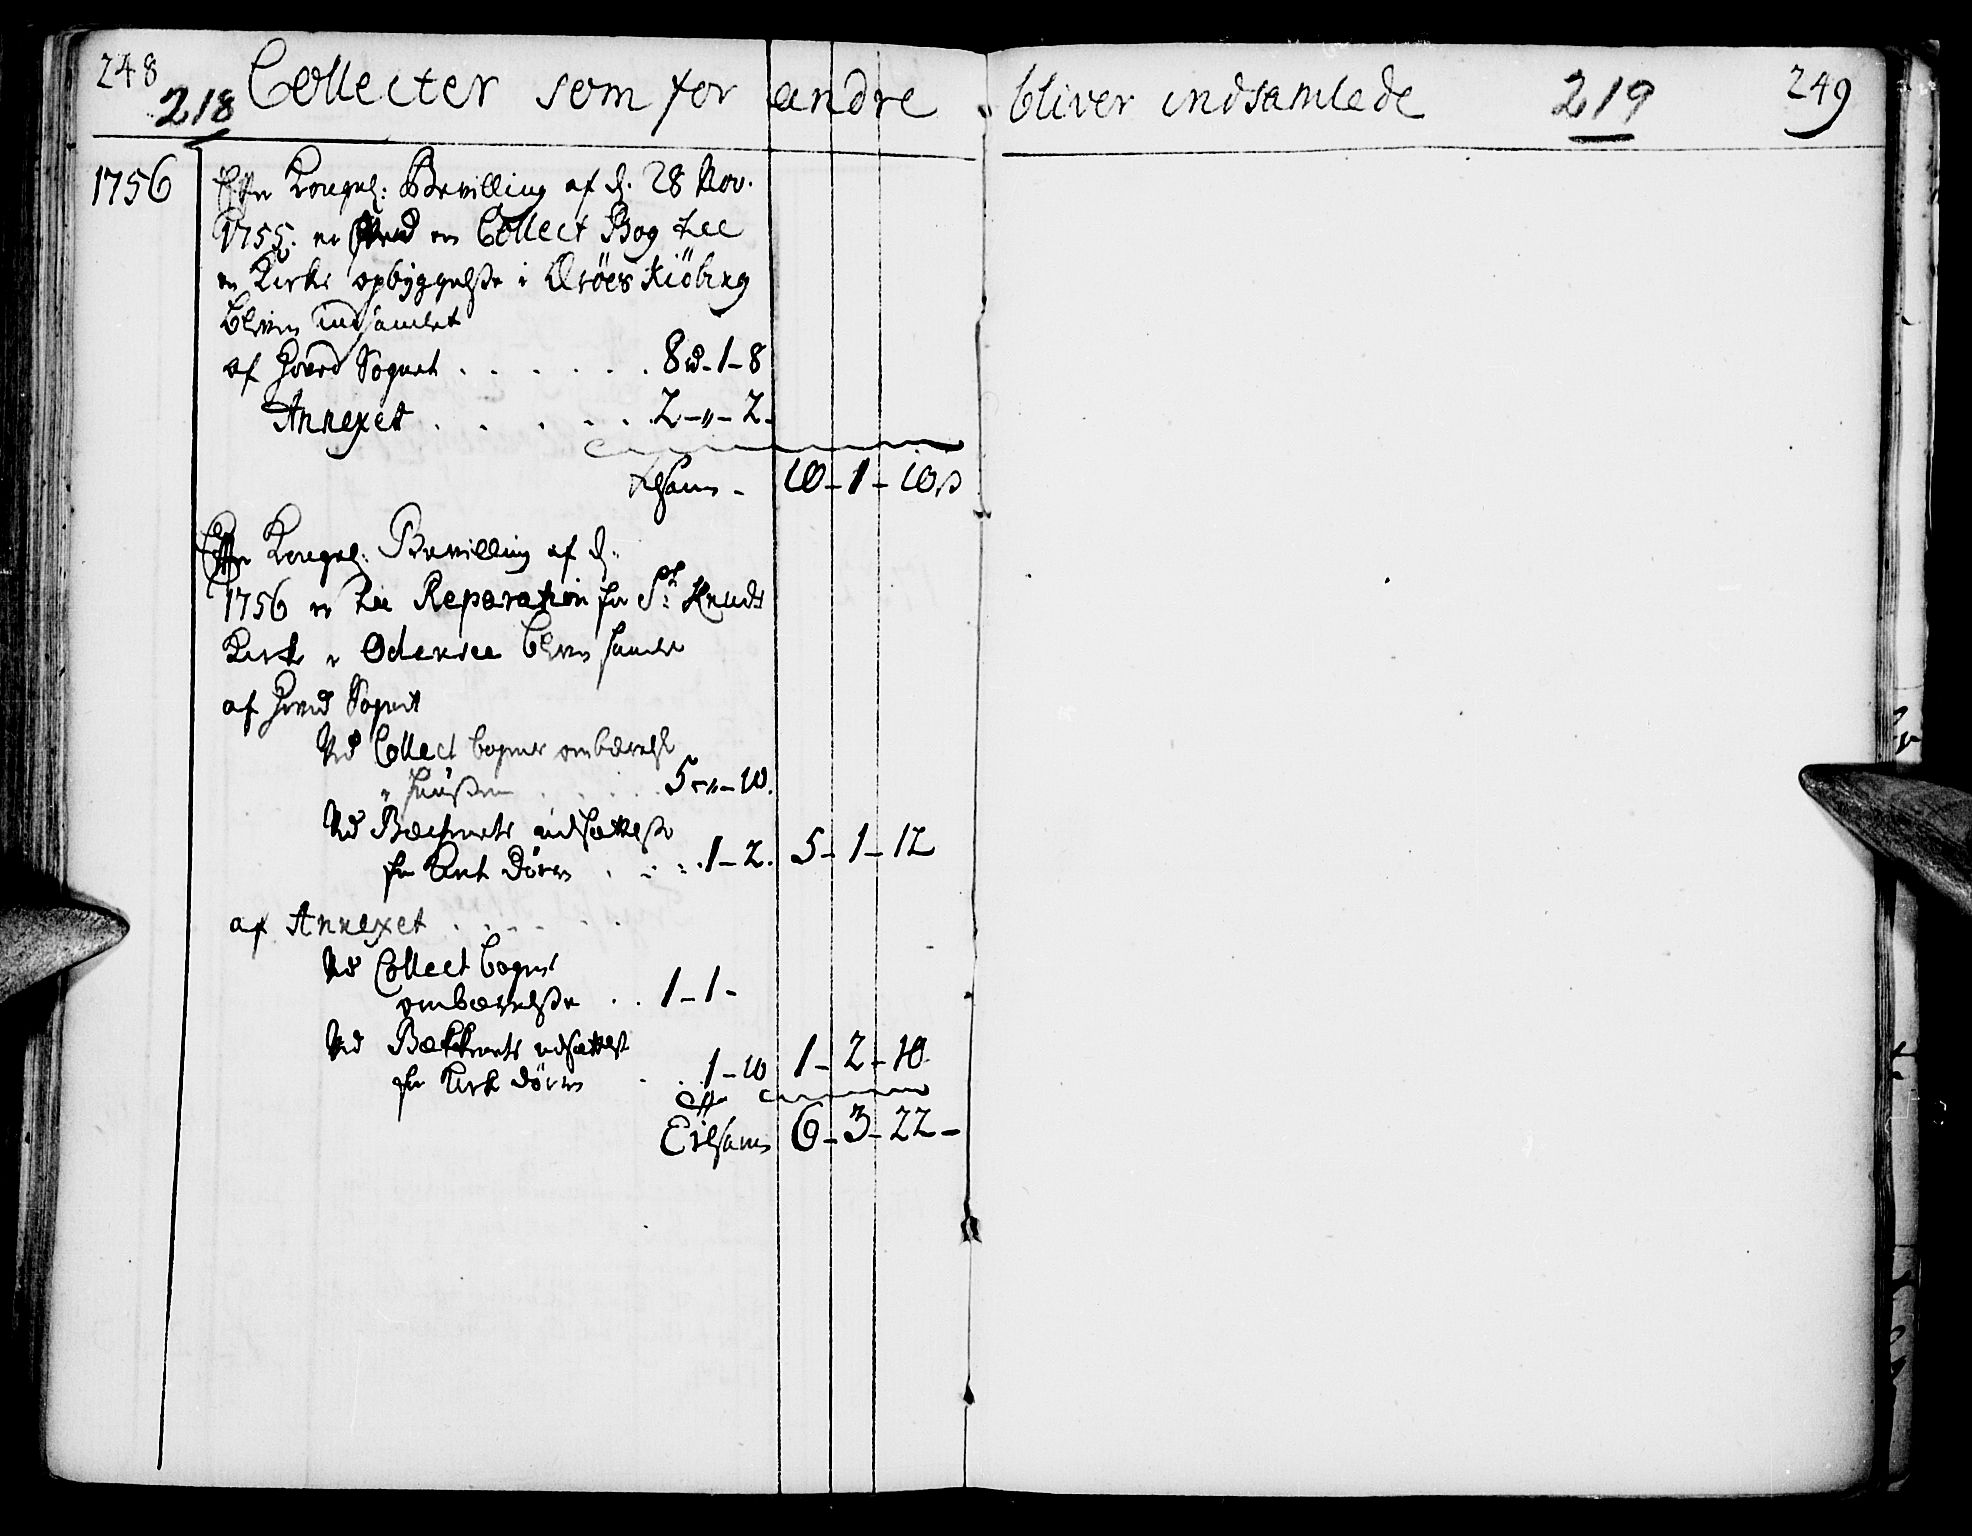 248
218 Collecter som for andre bliver indsamlede 219 249
1756 Efter Kongel: Bevilling af d. 28 Nov.
1755. er ved en Collect Bog til
en Kirkes opbyggelse i Æröes Kiöbing
bleven indsamlet
af Hoved Sognet . . . . . . 8 rd - 1 - 8
Annexet . . . . . . 2 - " - 2 -
tilsam - 10 - 1 - 10 s
Efter Kongel: Bevilling af d.
1756 er til Reparation for St: Knuds
Kirke i Odensee bleven samlet
af Hoved Sognet
Ved Collect bogens ombærelse
i Huusene . . . . 5 - " - 10.
Ved Bæckenets udsættelse
for Kirk Dören . . . . 1 - 2. 5 - 1 - 12
af Annexet . . . . . .
Ved Collect bogens
ombærelse . . 1 - 1 -
Ved Bækkenets udsættelse
for Kirk dören . . 1 - 10 1 - 2 - 10
Tilsam 6 - 3 - 22 -